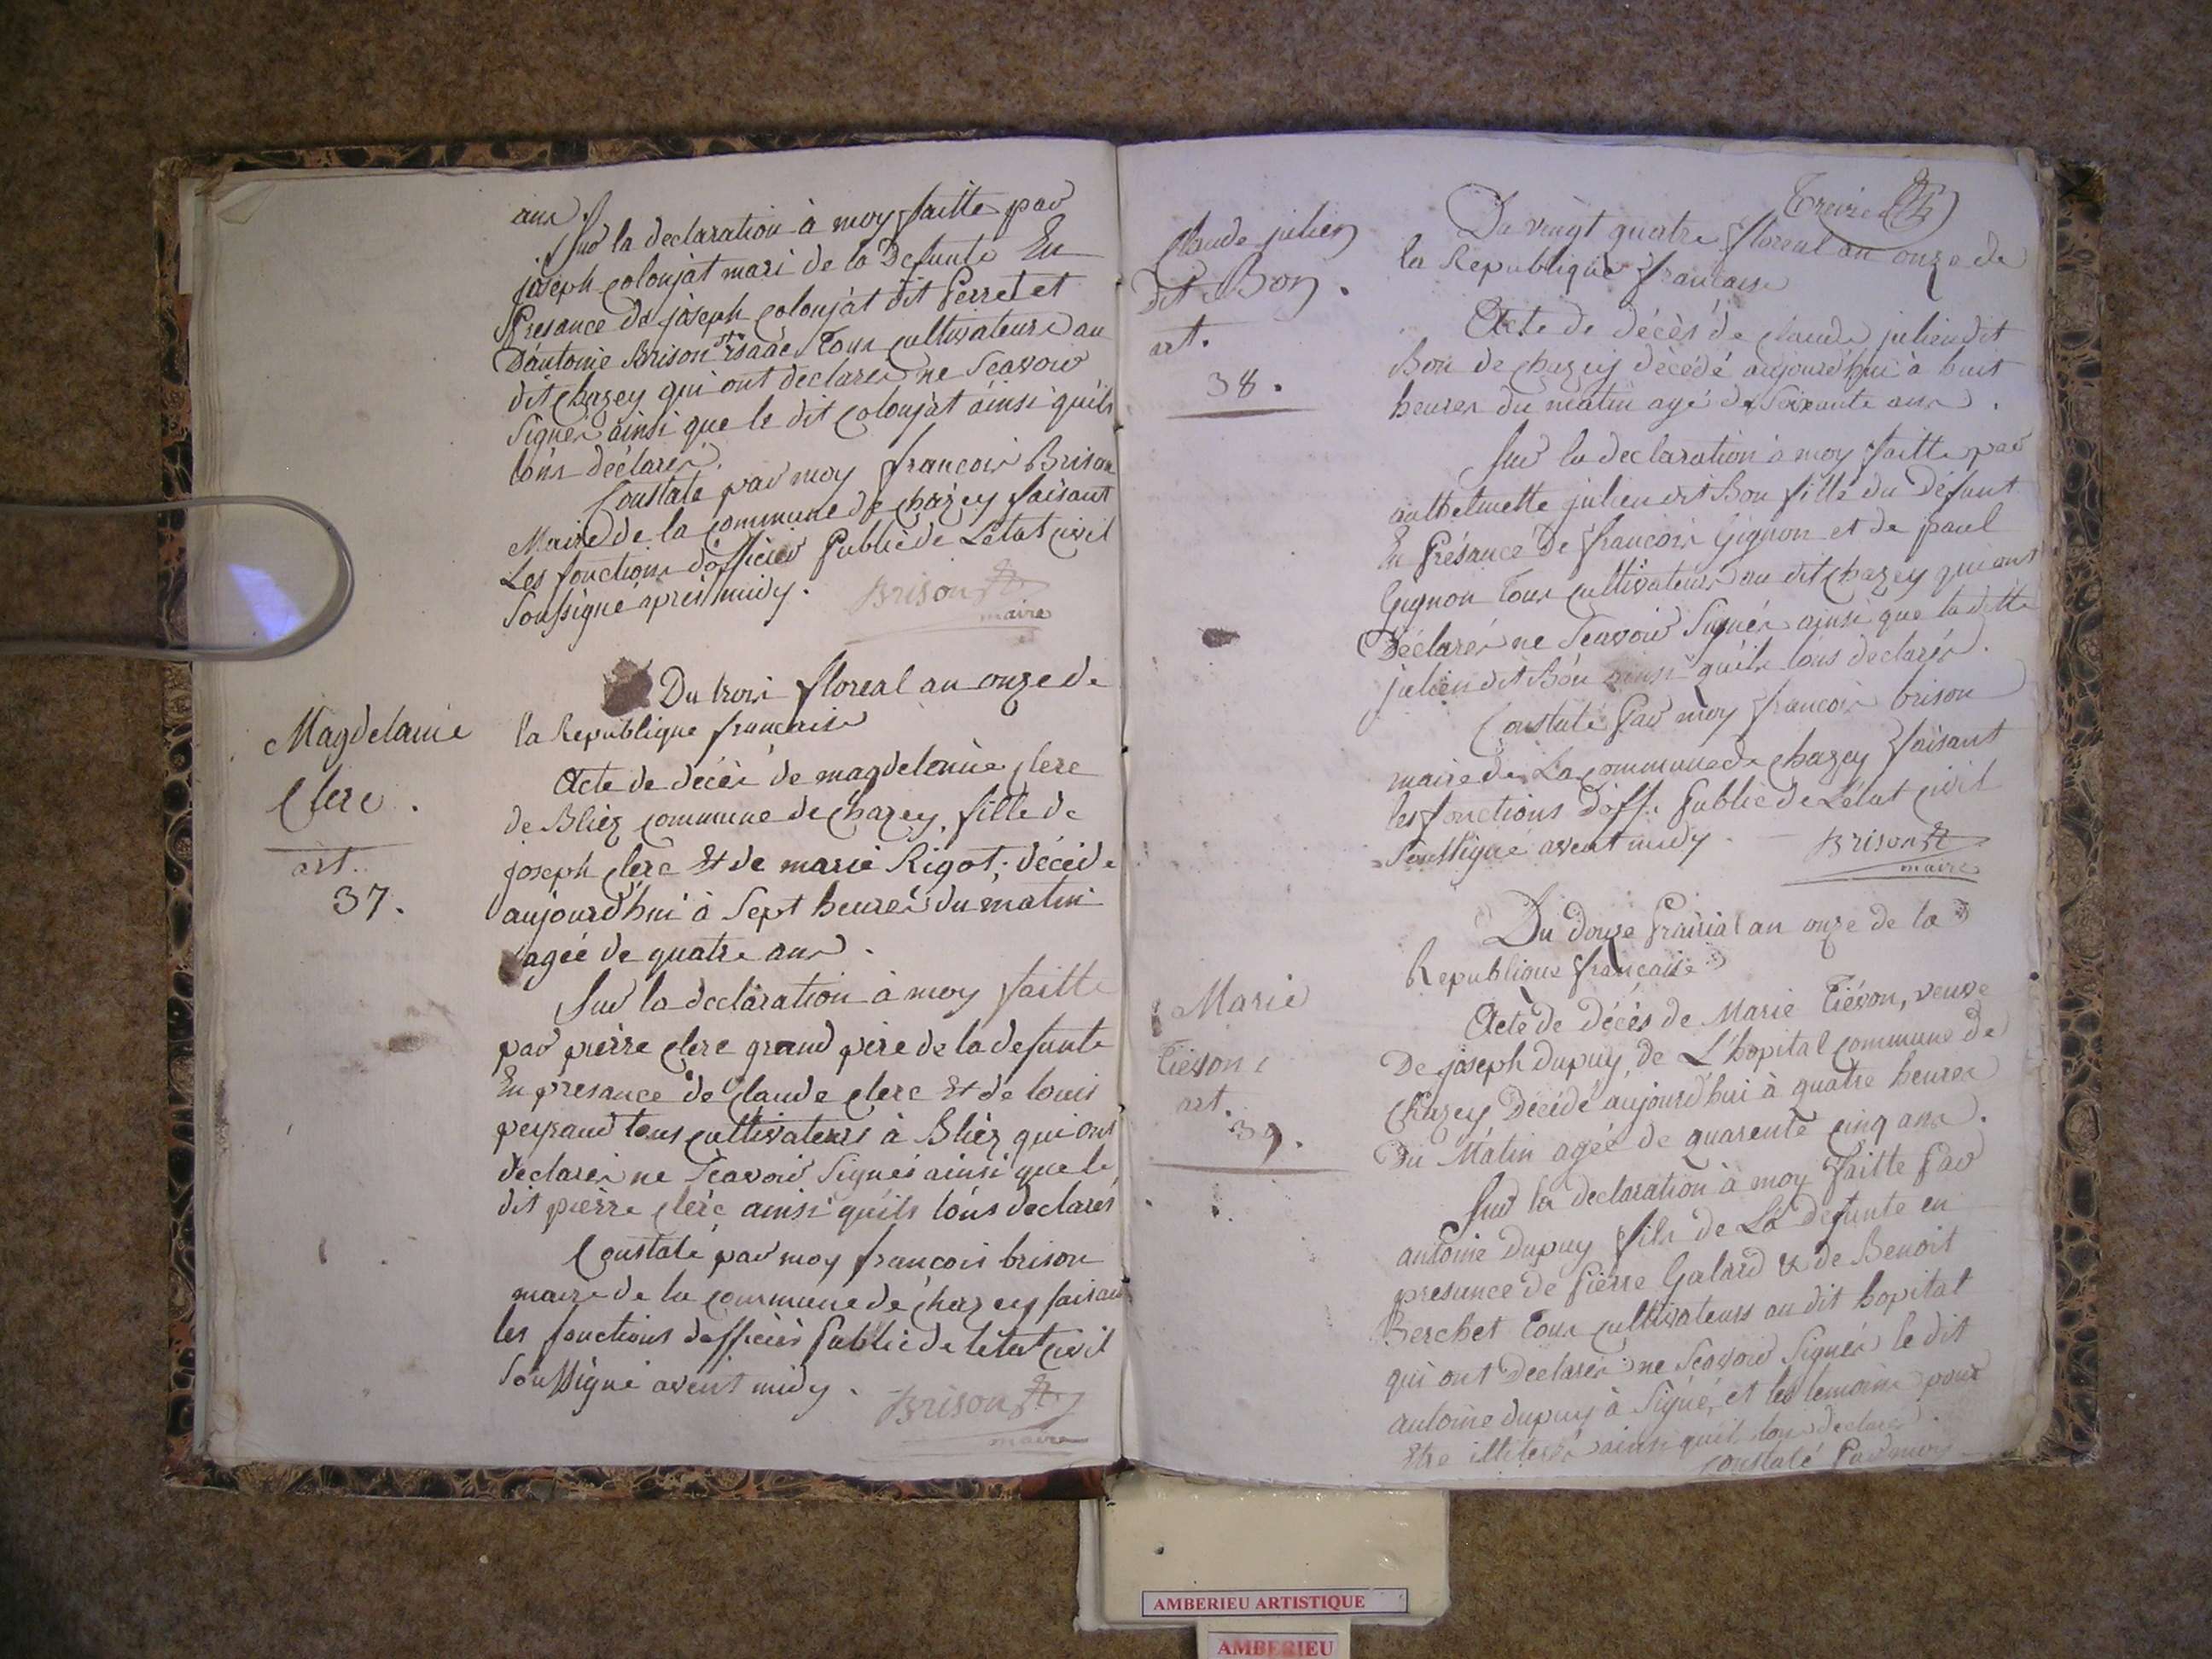 ans.
Sur la declaration à moy faitte par
joseph colonjat mari de la Defunte En
Presance de joseph colonjat dit Perret et
D'antoine Brison dt isaac Tous cultivateurs au
dit chazey qui ont declarés ne Scavoir
Signés ainsi que le dit colonjat ainsi quils
lons déclarés.
Constate par moy francois Brison
Maire de la commune de chazey faisant
Les fonctions d'officier Public de Létat civil
Soussigné après midy. Brison
maire
Du trois floreal an onze de
la Republique francaise
Magdelaine
Clerc.
art.
37.
Acte de décès de magdelenne clerc
de Bliez commune de chazey, fille de
joseph clerc Et de marie Rigot, décédé
aujourd'hui à Sept heures du matin
agée de quatre ans.
Sur la declaration à moy faitte
par pierre clerc grand pere de la defunte
En presance de Claude clerc Et de louis
peyraud tous cultivateurs à Bliez qui ont
declarés ne Scavoir Signés ainsi que le
dit pierre clerc ainsi quils lons declarés
Constaté par moy francois brison
maire de la commune de chazey faisant
les fonctions d'officier Public de letat civil
Soussigné avent midy. Brison
maire
Treize
Claude julien
dit Bon.
art.
38.
Du vingt quatre floreal an onze de
la Republique francaise
Acte de décès de claude julien dit
Bon de chazey décédé aujourd'hui à huit
heures du matin agé de Soixante ans.
Sur la declaration à moy faitte par
anthelmette julien dit Bon fille du Défunt
En Présance De francois Gignon et de paul
Gignon Tous cultivateurs au dit chazey qui ont
Déclarés ne Scavoir Signés ainsi que la ditte
julien dit Bon ainsi quils lons declarés.
Constaté Par moy francois brison
maire de La commune de chazey faisant
les fonctions d'off. Public de Létat civil
Soussigné avent midy. Brison
maire
Du douze Prairial an onze de la
Republique francaise
Marie
Tiévon
art.
39.
Acte de décès de Marie Tiévon, veuve
De joseph Dupuy, de L'hopital commune de
Chazey Décédé aujourd'hui à quatre heures
Du Matin agée de quarente cinq ans.
Sur la declaration à moy faitte Par
antoine Dupuy fils de La defunte en
presance de Pierre Galard & de Benoit
Berchet Tous cultivateurs au dit hopital
qui ont Declarés ne Scavoir Signés le dit
antoine dupuy à Signé, et les temoins pour
Etre illiterés ainsi quil lons declarés.
Constaté Par moy
AMBERIEU ARTISTIQUE
AMBERIEU